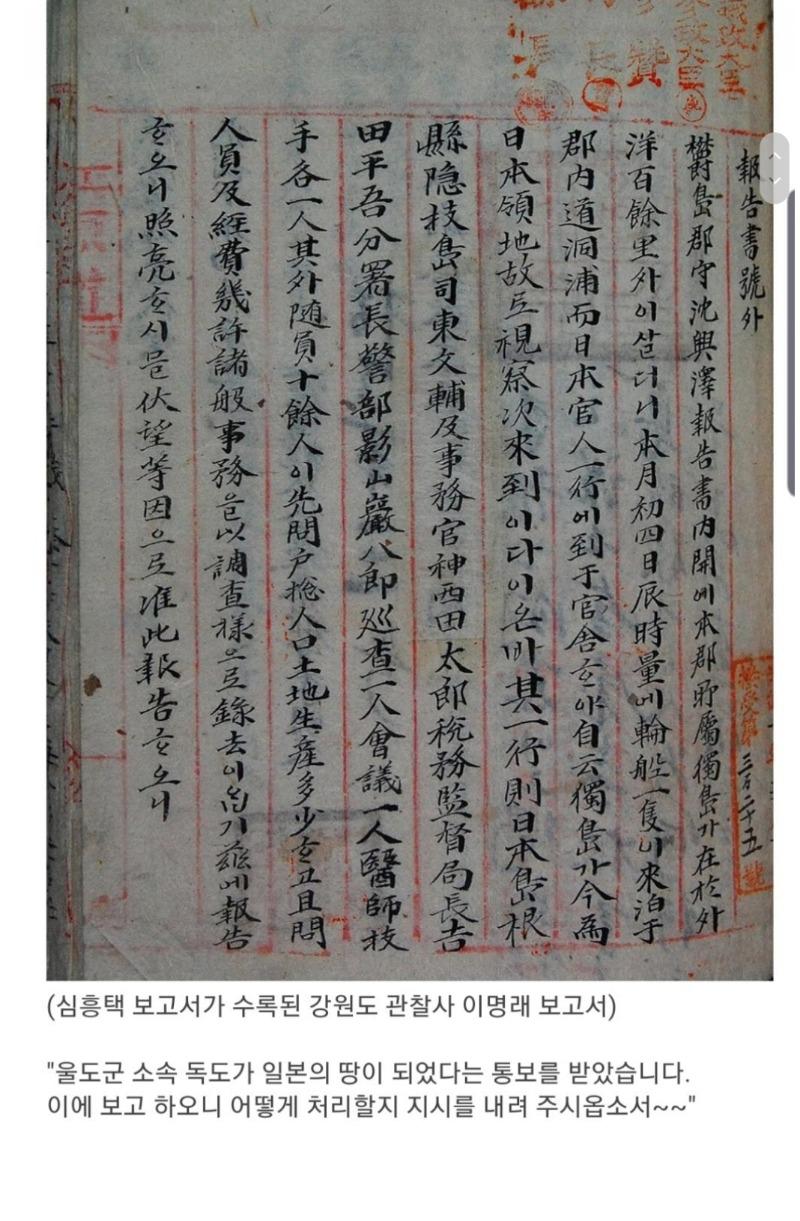 報告書號外
欝島郡守沈興澤報告書內開에本郡所屬獨島가在於外
洋百餘里外이살더니本月初四日辰時量에輪船一隻이來泊于
郡內道洞浦而日本官人一行에到于官舍ᄒᆞ야自云獨島가今爲
日本領地故로視察次來到이다이온바其一行則日本島根
縣隱枝島司東文輔及事務官神西田太郎稅務監督局長吉
田平吾分署長警部影山巖八郎巡查一人會議一人醫師技
手各一人其外随員十餘人이先問戶摠人口土地生産多少ᄒᆞ고且問
人員及經費幾許諸般事務으로以調查樣으로錄去이ᄋᆞᆸ기玆에報告
ᄒᆞ오니照亮ᄒᆞ시믈伏望等因으로准此報告ᄒᆞ오니
(심흥택 보고서가 수록된 강원도 관찰사 이명래 보고서)
"울도군 소속 독도가 일본의 땅이 되었다는 통보를 받았습니다.
이에 보고 하오니 어떻게 처리할지 지시를 내려 주시옵소서~~"